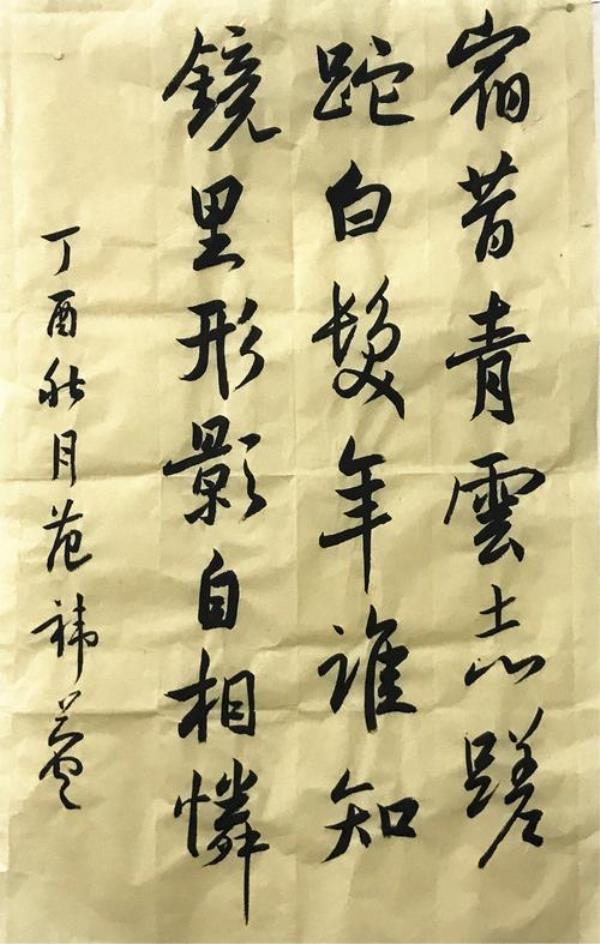 宿昔青雲志蹉
跎白髮年誰知
鏡里形影自相憐
丁酉秋月范禕